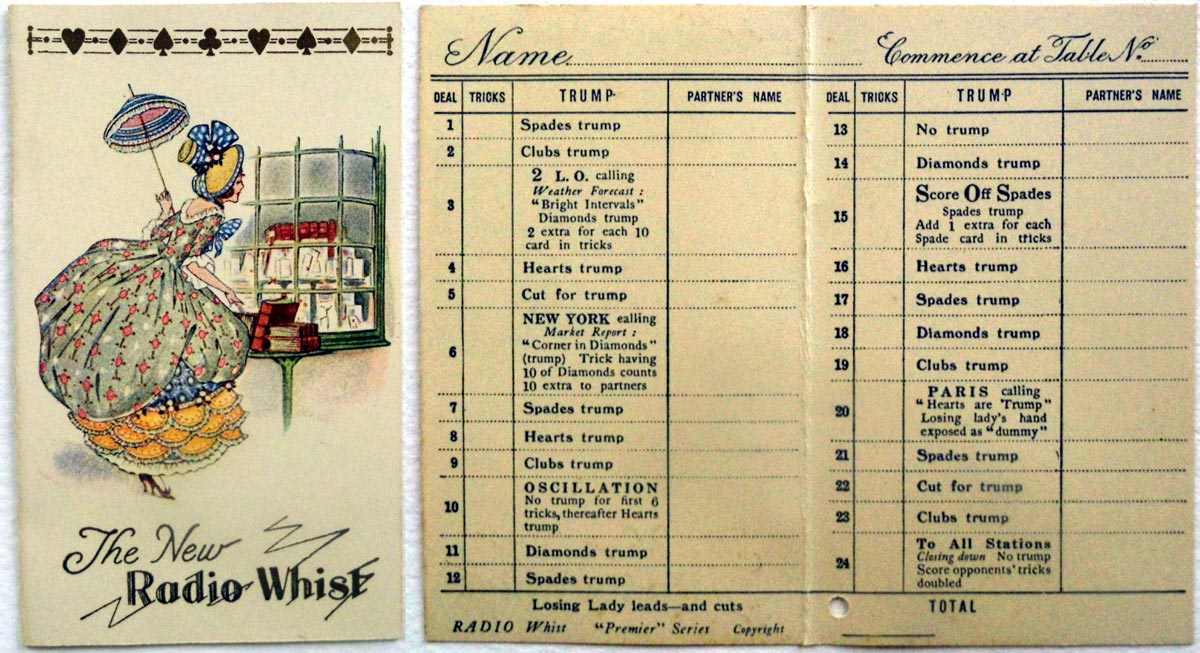 The New
Radio Whist
Name
Commence at Table No.
DEAL TRICKS TRUMP PARTNER'S NAME
1 Spades trump
2 Clubs trump
3
2 L.O. calling
Weather Forecast :
"Bright Intervals"
Diamonds trump
2 extra for each 10
card in tricks
4 Hearts trump
5 Cut for trump
6
NEW YORK calling
Market Report :
"Corner in Diamonds"
(trump) Trick having
10 of Diamonds counts
10 extra to partners
7 Spades trump
8 Hearts trump
9 Clubs trump
10
OSCILLATION
No trump for first 6
tricks, thereafter Hearts
trump
11 Diamonds trump
12 Spades trump
Losing Lady leads—and cuts
RADIO Whist "Premier" Series Copyright
DEAL TRICKS TRUMP PARTNER'S NAME
13 No trump
14 Diamonds trump
15
Score Off Spades
Spades trump
Add 1 extra for each
Spade card in tricks
16 Hearts trump
17 Spades trump
18 Diamonds trump
19 Clubs trump
20
PARIS calling
"Hearts are Trump"
Losing lady's hand
exposed as "dummy"
21 Spades trump
22 Cut for trump
23 Clubs trump
24
To All Stations
Closing down No trump
Score opponents' tricks
doubled
TOTAL